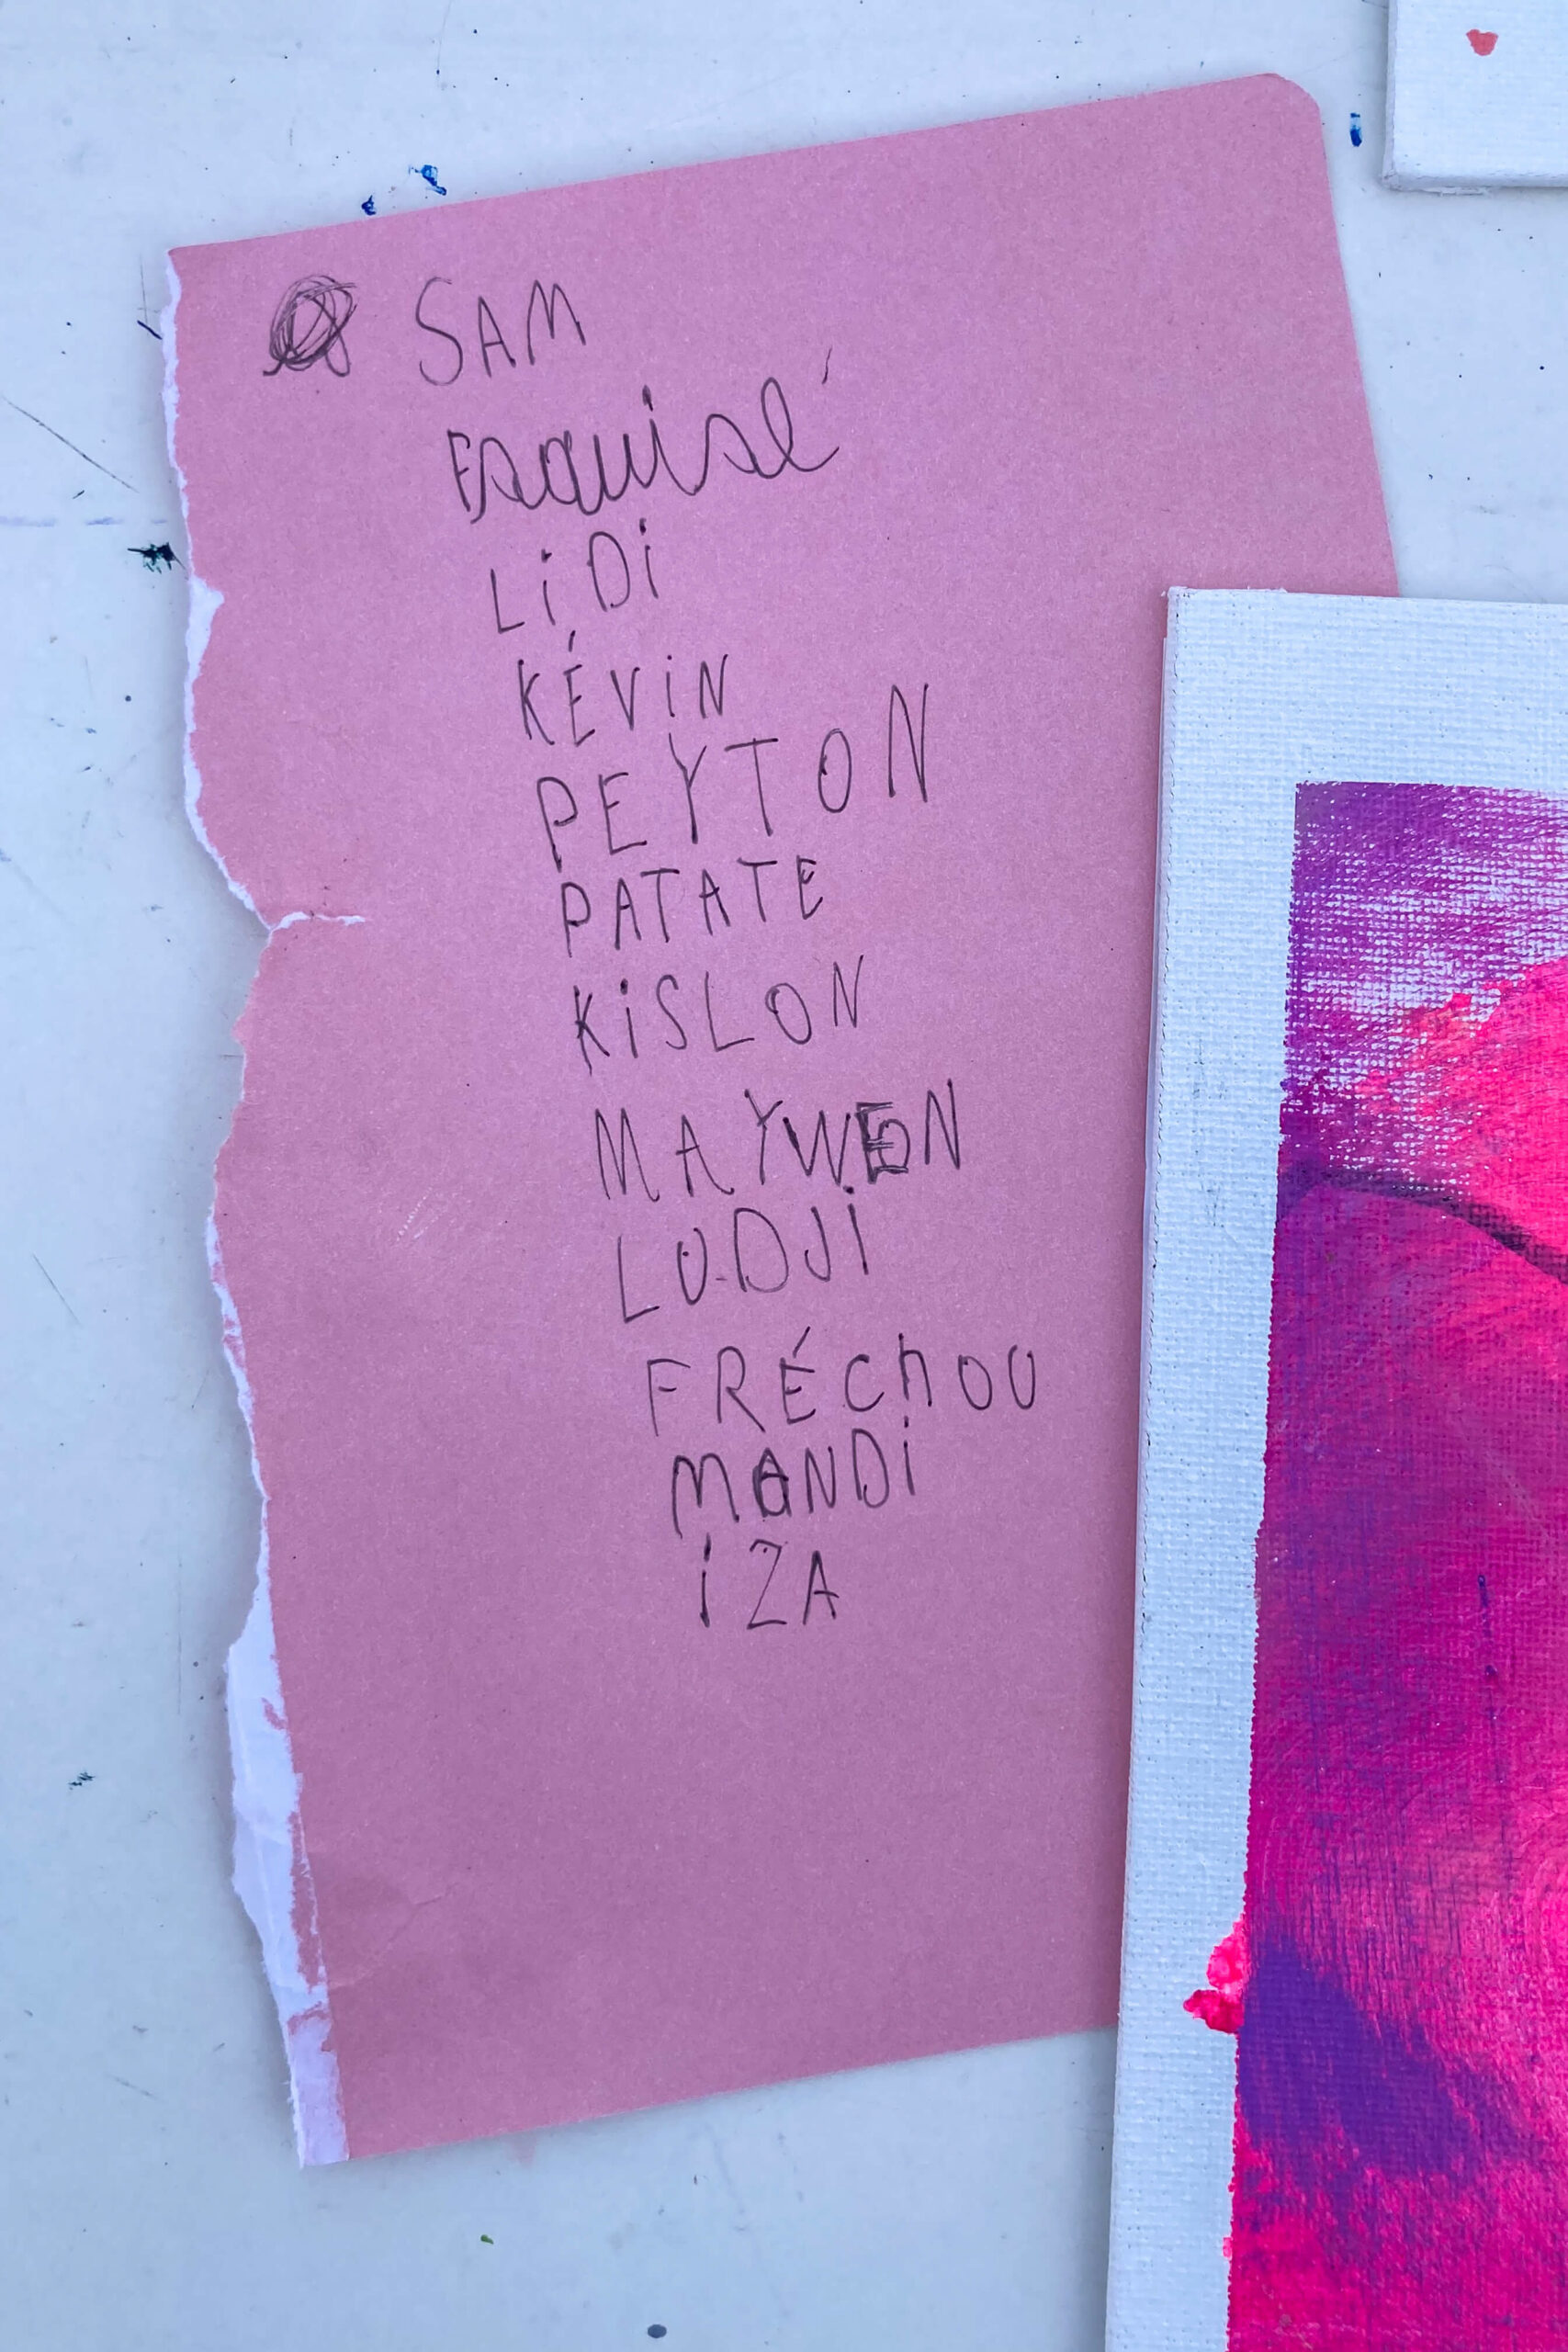 SAM
Esquisé
LiDi
KÉViN
PEYTON
PATATE
KiSLON
MAYWEN
LUDJi
FRÉChOU
MANDi
iZA